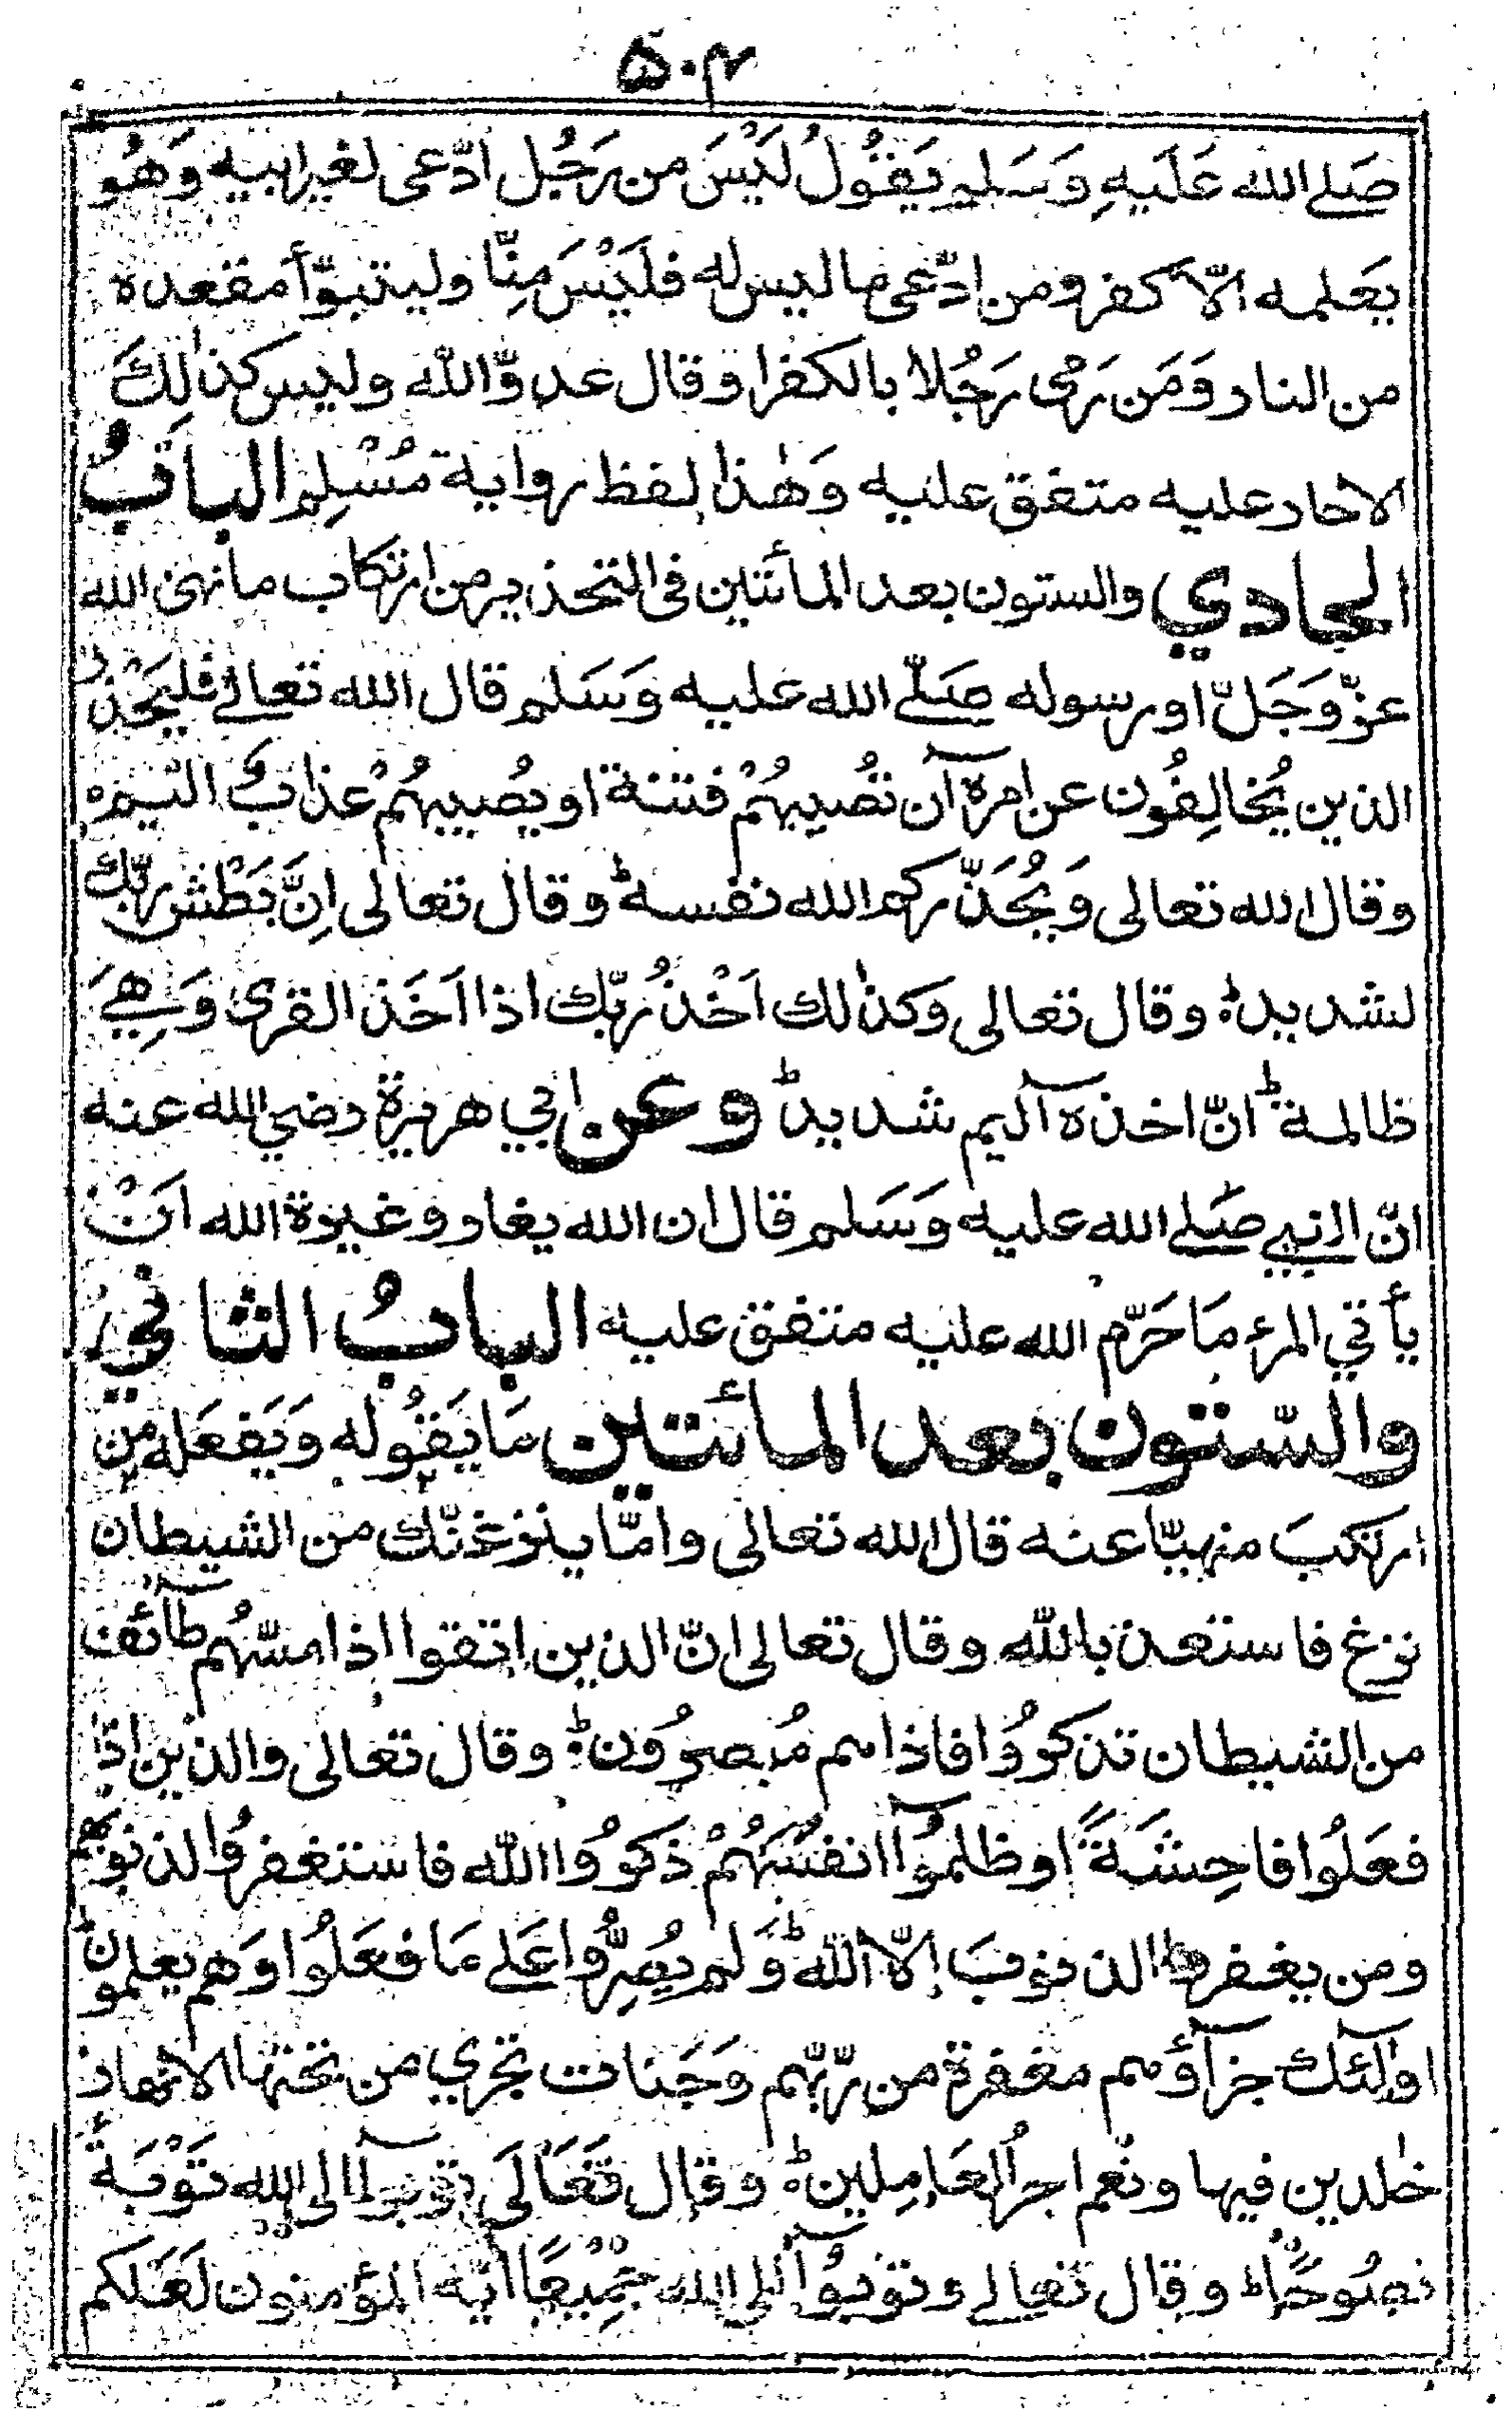 ۵۰۴
صَلے الله عَلَيهِ وَسَلم يَقُولُ لَيْسَ من رَجُل ادّعى لغير ابيه وَهُو
يَعلمه الّا كفر ومن ادّعى ما ليس له فلَيْسَ مِنّا وليتبوّأ مقعده
من النار وَمَن رَمى رَجُلا بالكفر او قال عدوّ الله وليس كذٰلِكَ
الا حار عليه متفق عليه وَهٰذا لفظ رواية مُسْلِم البابُ
الحادي والستون بعد المأتين فى التحذير من ارتكاب ما نهى الله
عزّ وَجَلّ او رسوله صَلّے الله عليه وَسَلم قال الله تعالےٰ فليَحْذر
الذين يُخالِفُون عن امرهٓ ان تُصيبهُمْ فتنة او يُصيبهُمْ عذابٌ اليم ه
وقال الله تعالى وَيُحَذّركم الله نفسهٗ ط وقال تعالى اِنَّ بَطْش ربّك
لشديد ه وقال تعالى وكذٰلك اَخْذُ ربّك اذا اَخَذ القرى وَهِيَ
ظالمة ط انّ اخذهٓ اليم شديد ط وعن ابي هريرة رضي الله عنه
انّ النبي صَلے الله عليه وَسَلم قال ان الله يغار وغيرة الله اَنْ
يأتي المرء مَا حَرّم الله عليه متفق عليه البابُ الثاني
والسّتون بعد المأتين مَا يَقُوله وَيَفعَله من
ارتكبَ منهيّا عنه قال الله تعالى وامّا ينزغنّك من الشيطان
نزغ فاستعذ بالله وقال تعالى انّ الذين اتقوا اذا مسّهُم طآئف
من الشيطان تذكرُوا فاذا هم مُبصرُون ه وقال تعالى والذين اذا
فعَلُوا فاحِشَةً او ظلمُوٓا انفسَهُمْ ذكرُوا الله فاستغفرُوا لذنوبهم
ومن يغفر الذنوبَ اِلّا اللّٰه ط وَلم يُصِرُّوا عَلے مَا فعَلُوا وَهم يعلمون ط
اولٰٓئك جزآؤهم مغفرة من رّبّهم وَجَنات تجري من تحتها الانهار
خٰلدين فيها ونعم اجرُ العَامِلين ه وقال تَعَالَى توبوآ الى الله تَوْبَةً
نصُوحًا ط وقال تعالے وتوبُوٓا الى الله جَمْيعًا ايّه المؤمنون لعَلكم